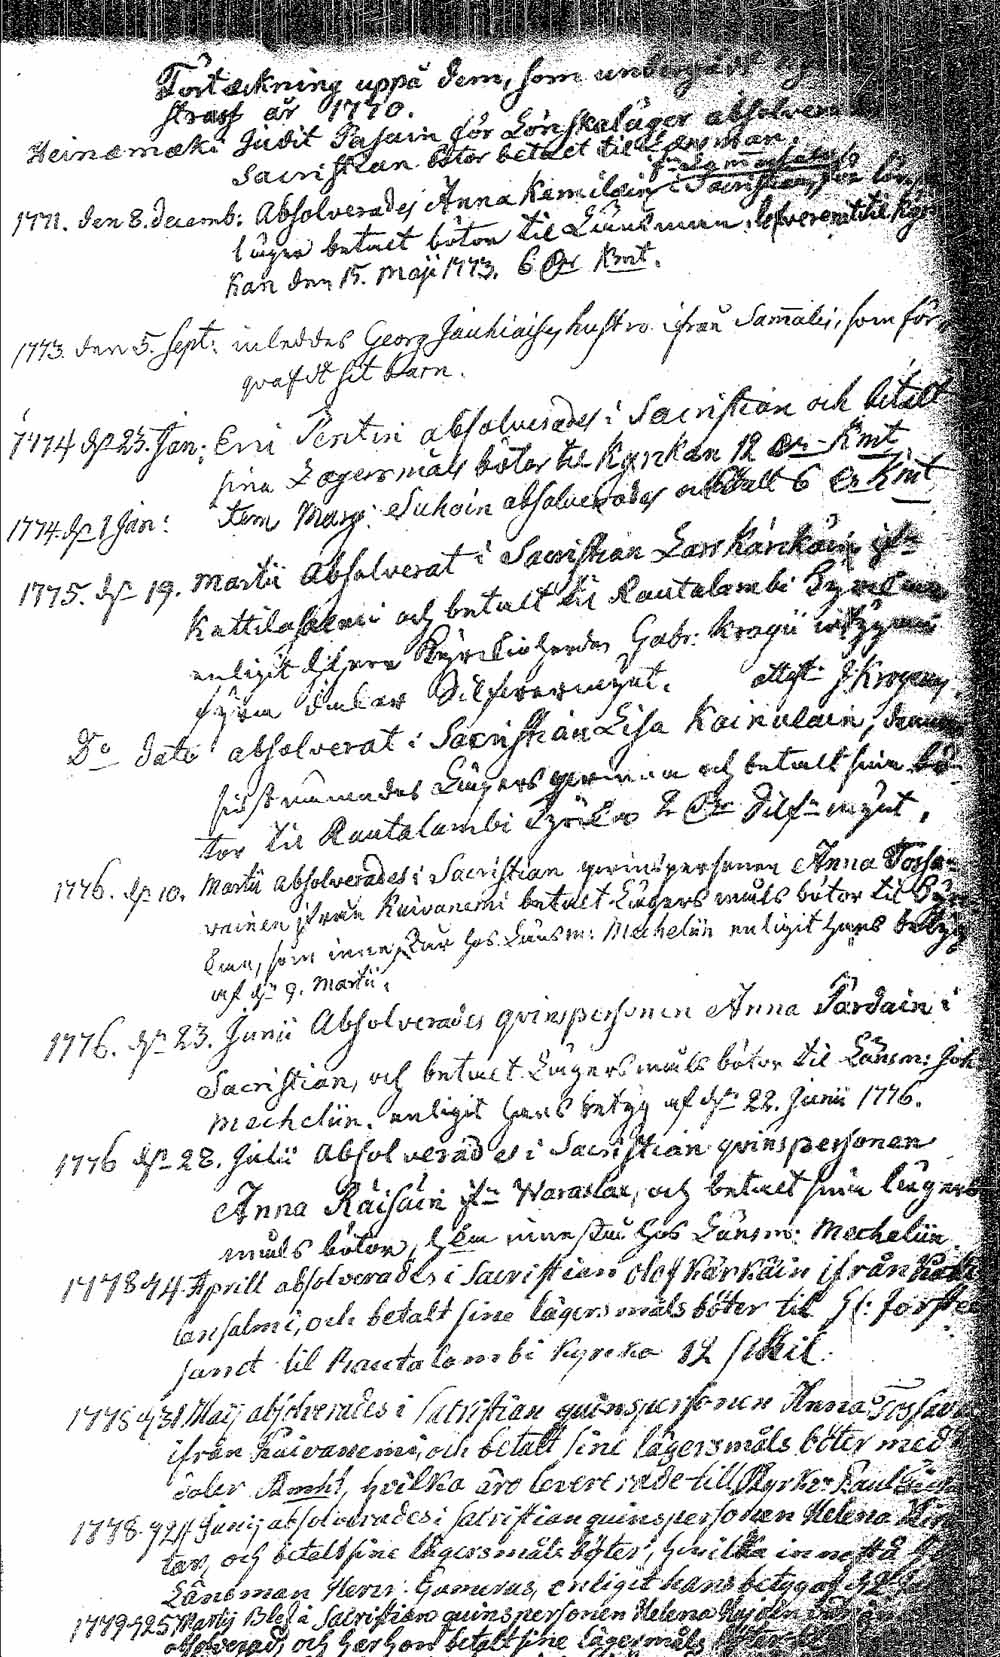 Förteckning uppå dem, som undergådt
straff år 1770.
Heinemæki Judit Pasain för Lönskaläger absolverat
Sacristian böter betalt til Länsman
1771. den 8. Decemb: Absolverades Anna Kemiläin i Sacristian, för löns
läger betalt böter til Länsman. lefvererat til Kyr
kan den 15. Maji 1773. 6 Dr Kmt.
1773. den 5. Sept: inleddes Georg Jauhiaises hustro ifrån Sammalis, som för
qvafdt sit barn.
1774 dn 23. Jan: Erri Pentin absolverades i Sacristian och betalt
sina Lægersmåls böter til Kyrkan 12 Dr Kmt
1774. dn 1 Jan: Item Marg: Suhoin absolverades och betalt 6 Dr Kmt
1775. dn 19. Martii Absolverat i Sacristian Lars Kärckäin ifn
Kattilasalmi och betalt til Rautalambi
enligit Kyrckioherden Gabr: Krogii
fyra daler Silfvermynt. attest: J: Krogerus
Do dato absolverat i Sacristian Lisa Kainulain,
Lägers qvinna och betalt sina bö
tor til Rautalambi Kyrko 2 Dr Silfr mynt.
1776. dn 10. Martii absolverades i Sacristian qvinspersonen Anna Tossa-
vainen ifrån Kaivanemi betalt Lägersmåls böter til Kyr
kan, som innestår hos Länsm: Mechelin enligit hans betyg
af dn 9. Martii.
1776. dn 23. Junii Absolverades qvinspersonen Anna Pardain i
Sacristian, och betalt Lägersmåls böter til Länsm: Joh:
Mechelin. enligit hans betyg af dn 22. Junii 1776.
1776 dn 28. Julii Absolverades i Sacristian qvinspersonen
Anna Räisäin ifn Waraslax, och betalt sina lägers
måls böter, innestår hos Länsm: Mechelin
1778 d 4 Aprill absolverades i Sacristian Olof Kärkäin ifrån Katti
lansalmi, och betalt sine lägersmåls böter til
samt til Rautalambi Kyrcka 12 skil:
1778 d 31 Maij absolverades i Sacristian quinspersonen Anna Tossava
ifrån Kaivanemi, och betalt sine lägersmåls böter med
daler Kmt, hvilka äro levererade till Kyrko
1778 d 24 Junij absolverades i Sacristian quinspersonen Helena
tar, och betalt sine lägersmåls böter, hvilka innestå
Länsman Herr Gumerus, enligit hans betyg af
1779 d 25 Martij Blef i Sacristian quinspersonen Helena
absolverad, och har hon betalt sine lägersmåls böter til